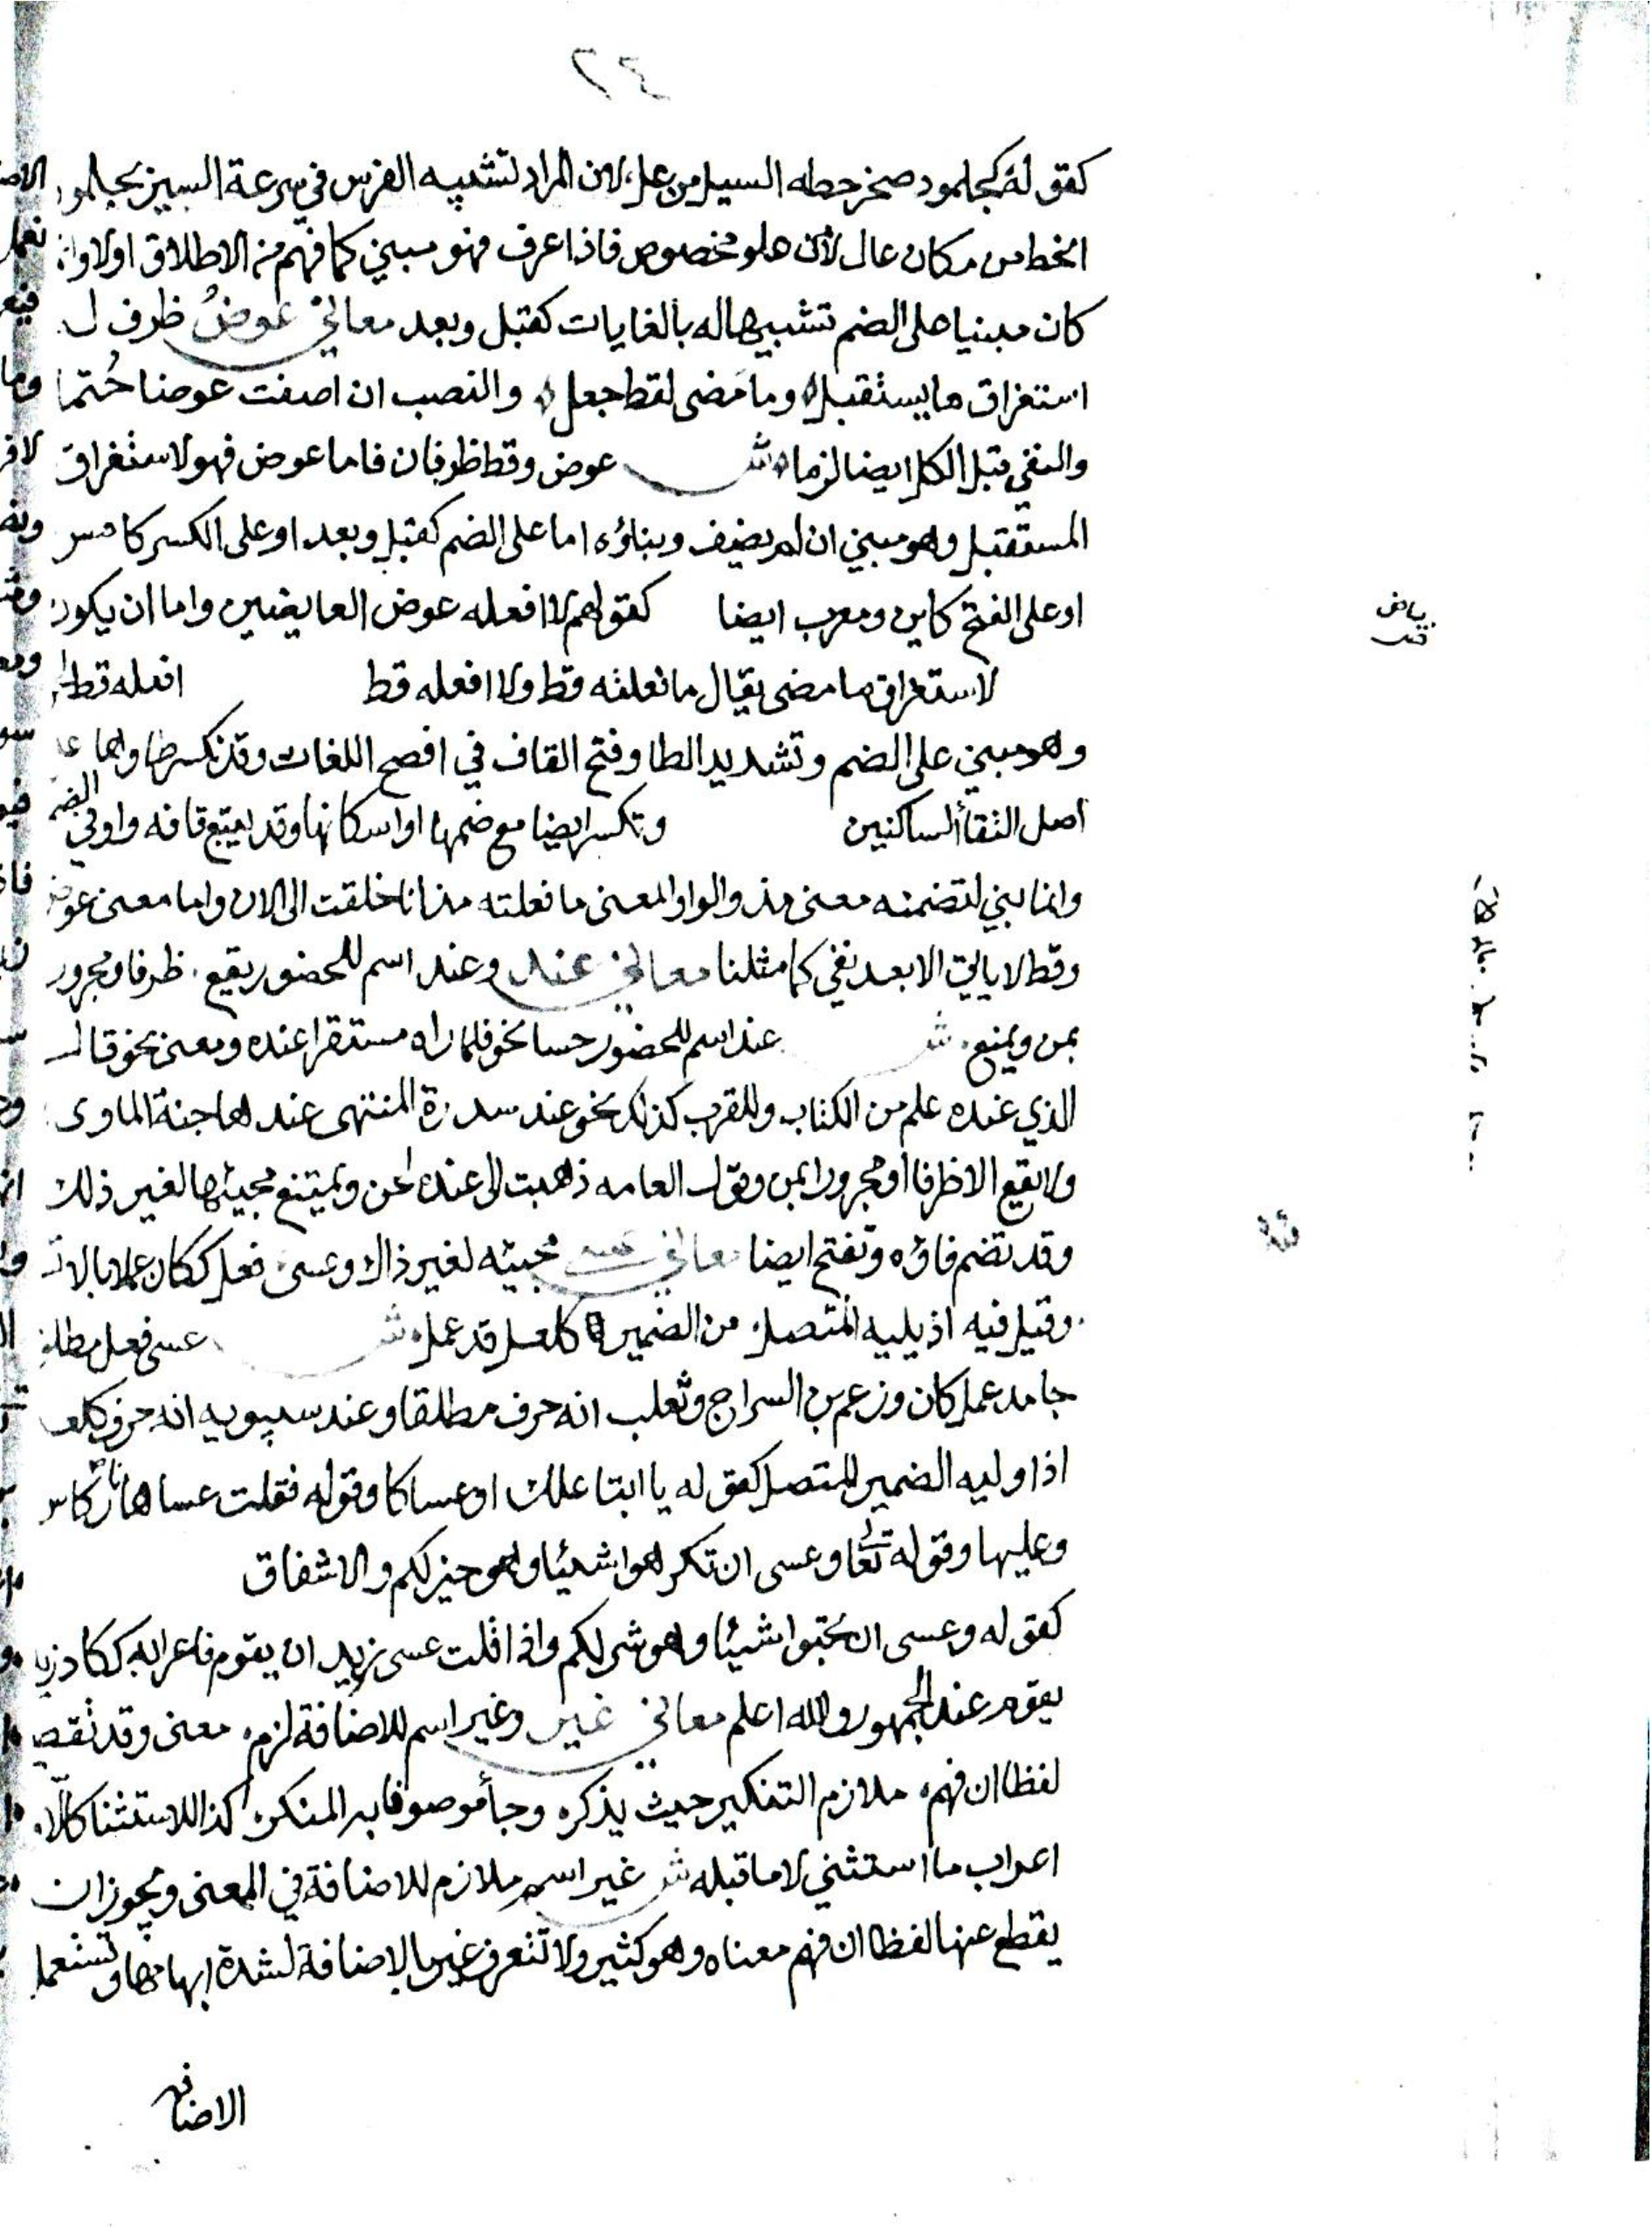 ٢٤
كقوله كجلمود صخر حطه السيل من عل، لان المراد تشبيه الفرس في سرعة السير بجلمود
انحط من مكان عال لا من علو مخصوص فاذا عرف فهو مبني كما فهم من الاطلاق اولا وان
كان مبنيا على الضم تشبيها له بالغايات كقبل وبعد معاني عوضُ ظرف ل
استغراق ما يستقبل، وما مضى لقط جعل، والنصب ان اضفت عوضا حُتما
والنفي قبل الكل ايضا لزما، ش عوض وقط ظرفان فاما عوض فهو لاستغراق
المستقبل وهو مبني ان لم يضف وبناؤه اما على الضم كقبل وبعد او على الكسر كامس
او على الفتح كاين ومعرب ايضا كقولهم لا افعله عوض العايضين واما ان يكون
لاستغراق ما مضى يقال ما فعلته قط ولا افعله قط افعله قط
وهو مبني على الضم وتشديد الطا وفتح القاف في افصح اللغات وقد تكسر طاوها على
اصل التقأ الساكنين وتكسر ايضا مع ضمها او اسكانها وقد يتبع قافه واوفي الضم
وانما بني لتضمنه معنى مذ والواو المعنى ما فعلته مذ انا خلقت الى الان واما معنى عوض
وقط لا ياتي الا بعد نفي كما مثلنا معاني عند وعند اسم للحضور يقع. ظرفا ومجرور
بمن ويمنع. ش عند اسم للحضور حسا نحو فلما راه مستقرا عنده ومعنى نحو قال
الذي عنده علم من الكتاب وللقرب كذلك نحو عند سدرة المنتهى عندها جنة الماوى
ولا يقع الا ظرفا او مجرورا بمن وقول العامه ذهبت الى عنده لحن ويمتنع مجيئها لغير ذلك
وقد تضم فاؤه وتفتح ايضا معاني عسى مجيئه لغير ذاك وعسى فعل ككان عملا بالا
وقيل فيه اذ يليه المتصل، من الضمير كلعل قد عمل، ش عسى فعل مطلقا
جامد عمل كان وزعم بن السراج وثعلب انه حرف مطلقا وعند سيبويه انه حرف كلعل
اذا وليه الضمير المتصل كقوله يا ابتا علك او عساكا وقوله فقلت عساها نار كاس
وعليها وقوله تعا وعسى ان تكرهوا شيئا وهو خير لكم والاشفاق
كقوله وعسى ان تحبوا شيئا وهو شر لكم واذا قلت عسى زيد ان يقوم فاعرابه ككاد زيد
يقوم عند الجمهور والله اعلم معاني غير وغير اسم للاضافة لزم، معنى وقد تقص
لفظا ان فهم، ملازم التنكير حيث يذكر، وجأ موصوفا به المنكر، كذا للاستثنا كالا،
اعراب ما استثني لا ما قبله ش غير اسم ملازم للاضافة في المعنى ويجوز ان
يقطع عنها لفظا ان فهم معناه وهو كثير ولا تتعرف غير بالاضافة لشدة ابهامها وتستعمل
الاضافه
بياض